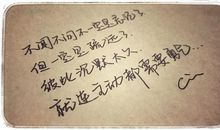 不闻不问不一定是忘记了
但一定是疏远了
彼此沉默太久
就连主动都需要勇气…